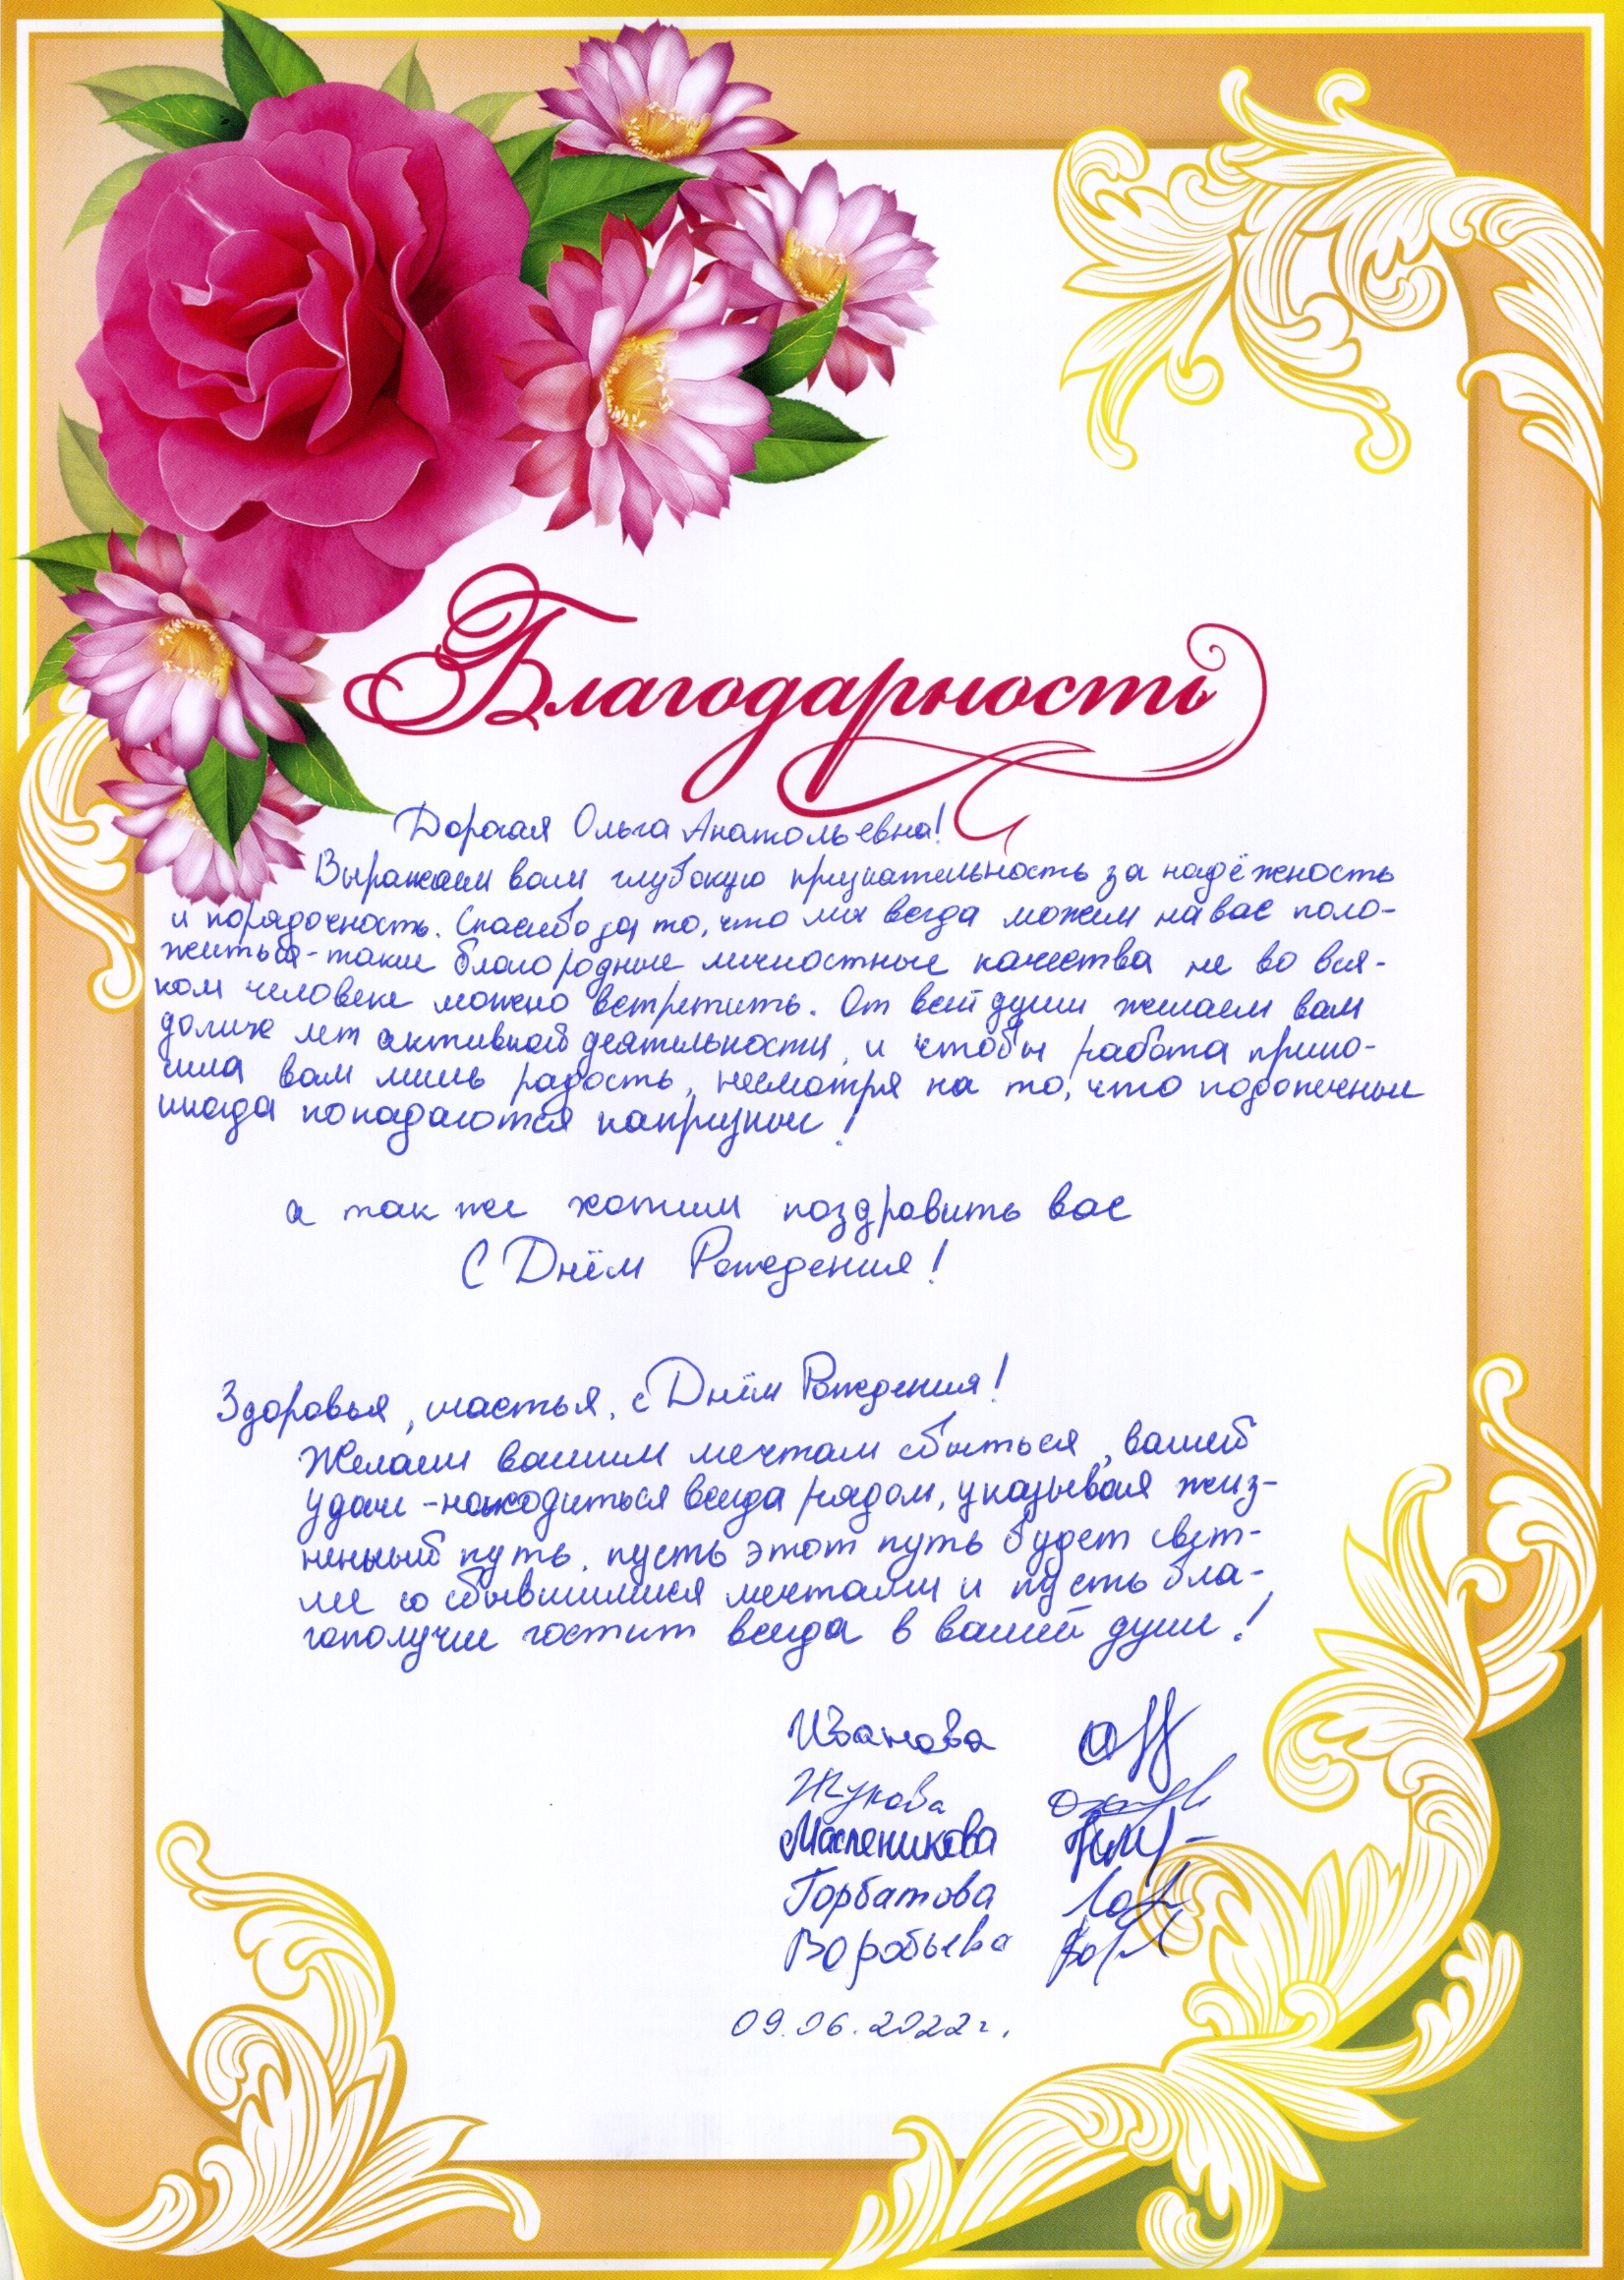 Благодарность
Дорогая Ольга Анатольевна!
Выражаем вам глубокую признательность за надёжность
и порядочность. Спасибо за то, что мы всегда можем на вас поло-
житься - такие благородные личностные качества не во вся-
ком человеке можно встретить. От всей души желаем вам
долгих лет активной деятельности, и чтобы работа прино-
сила вам лишь радость, несмотря на то, что подопечные
иногда попадаются капризные!
а так же хотим поздравить вас
С Днём Рождения!
Здоровья, счастья, с Днём Рождения!
Желаем вашим мечтам сбыться, вашей
удаче - находиться всегда рядом, указывая жиз-
ненный путь, пусть этот путь будет свет-
лее со сбывшимися мечтами и пусть бла-
гополучие гостит всегда в вашей душе!
Иванова
Жукова
Маслeникова
Горбатова
Воробьева
09.06.2022г.